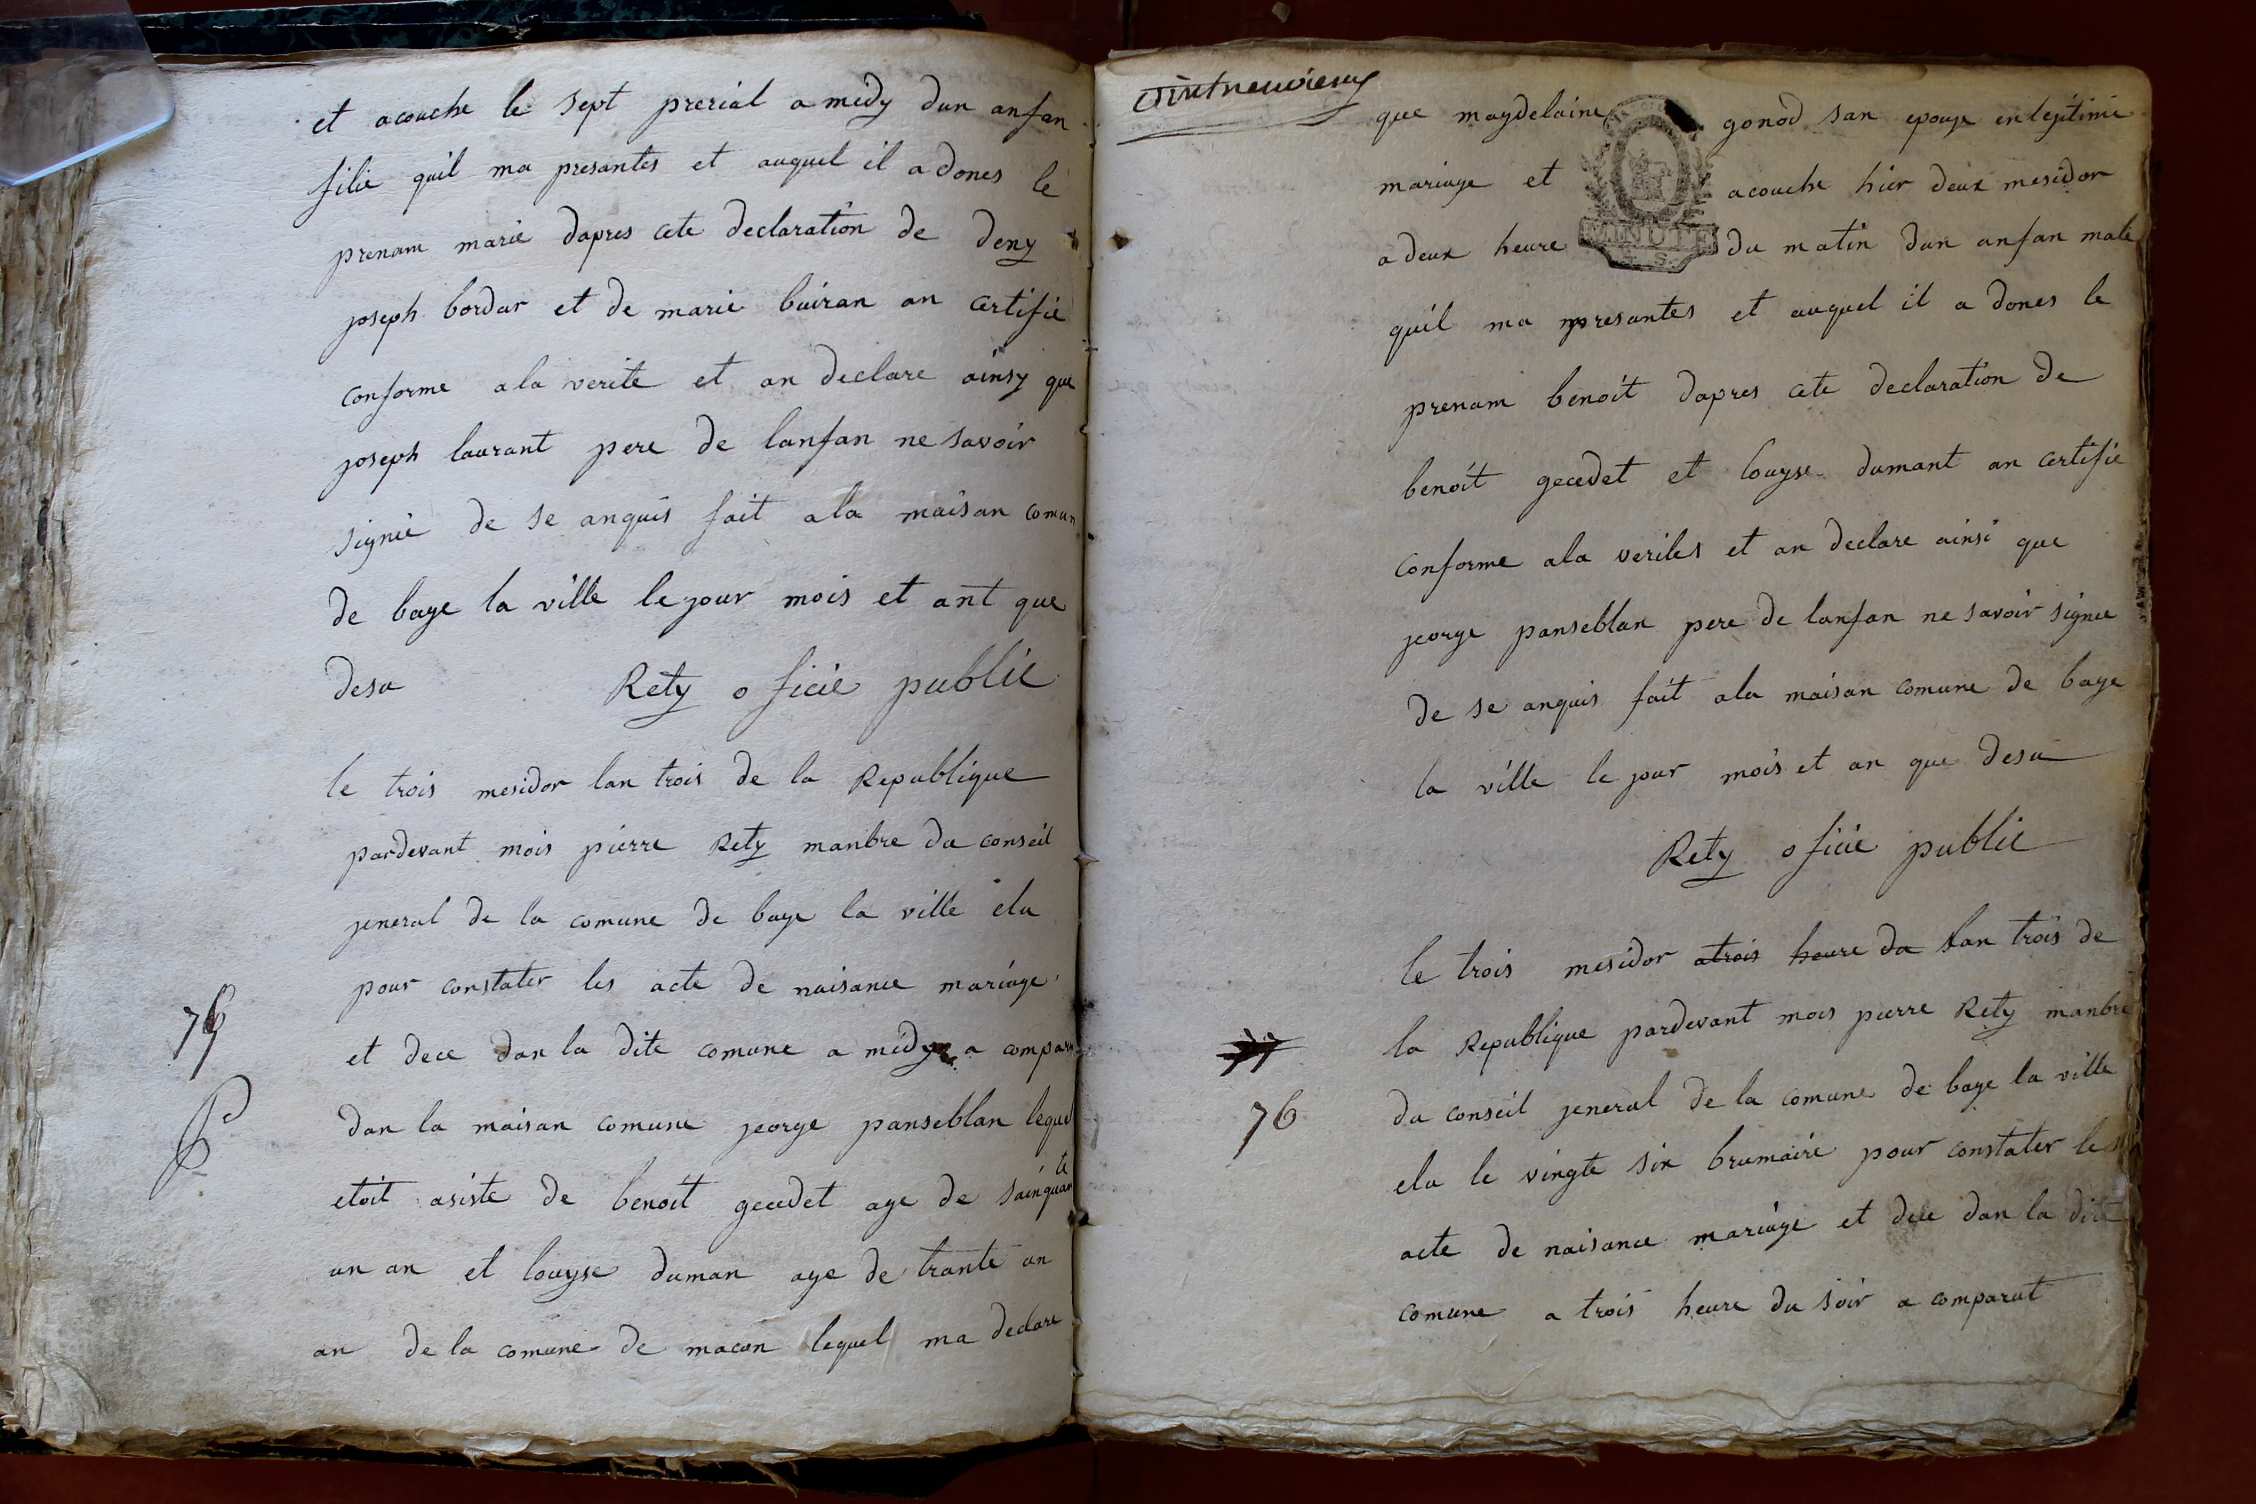 et acouche le sept prerial a midy dun anfan
filie quil ma presantes et auquel il a dones le
prenam marie dapres cete declaration de deny
joseph bordar et de marie buiran an certifie
conforme a la verite et an declare ainsy que
joseph laurant pere de lanfan ne savoir
signie de se anquis fait a la maisan comun
de baye la ville le jour mois et ant que
desu Rety oficie public
le trois mesidor lan trois de la Republique
pardevant mois pierre Rety manbre du conseil
jeneral de la comune de baye la ville elu
pour constater les acte de naisance mariage
et dece dan la dite comune a midy a comparu
dan la maisan comune jeorge panseblan lequel
etoit asiste de benoit gecedet age de sainquante
un an et louyse duman age de trante an
an de la comune de macon lequel ma declare
que magdelaine gonod san epouse en legitime
mariage et acouche hier deux mesidor
a deux heure du matin dun anfan male
MINUTE
quil ma presantes et auquel il a dones le
prenam benoit dapres cete declaration de
benoit gecedet et louyse dumant an certifie
conforme a la verites et an declare ainsi que
jeorge panseblan pere de lanfan ne savoir signee
de se anquis fait a la maisan comune de baye
la ville le jour mois et an que desu
Rety oficie public
le trois mesidor a trois heure du lan trois de
la Republique pardevant mois pierre Rety manbre
76
du conseil jeneral de la comune de baye la ville
elu le vingte six brumaire pour constater les
acte de naisance mariage et dece dan la dite
comune a trois heure du soir a comparut